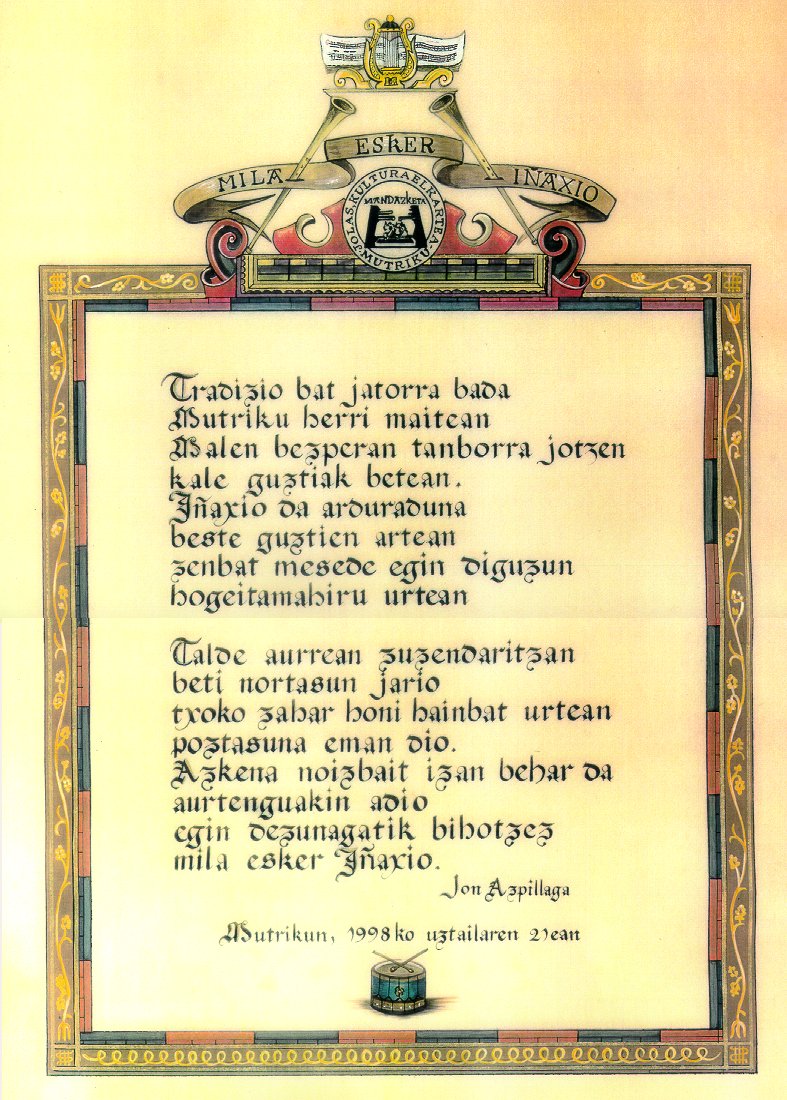 MILA ESKER IÑAXIO
JOLAS, KULTURA ELKARTEA - MUTRIKU -
MANDAZKETA
Tradizio bat jatorra bada
Mutriku herri maitean
Malen bezperan tanborra jotzen
kale guztiak betean.
Iñaxio da arduraduna
beste guztien artean
zenbat mesede egin diguzun
hogeitamahiru urtean
Talde aurrean zuzendaritzan
beti nortasun jario
txoko zahar honi hainbat urtean
poztasuna eman dio.
Azkena noizbait izan behar da
aurtenguakin adio
egin dezunagatik bihotzez
mila esker Iñaxio.
Jon Azpillaga
Mutrikun, 1998ko uztailaren 21ean